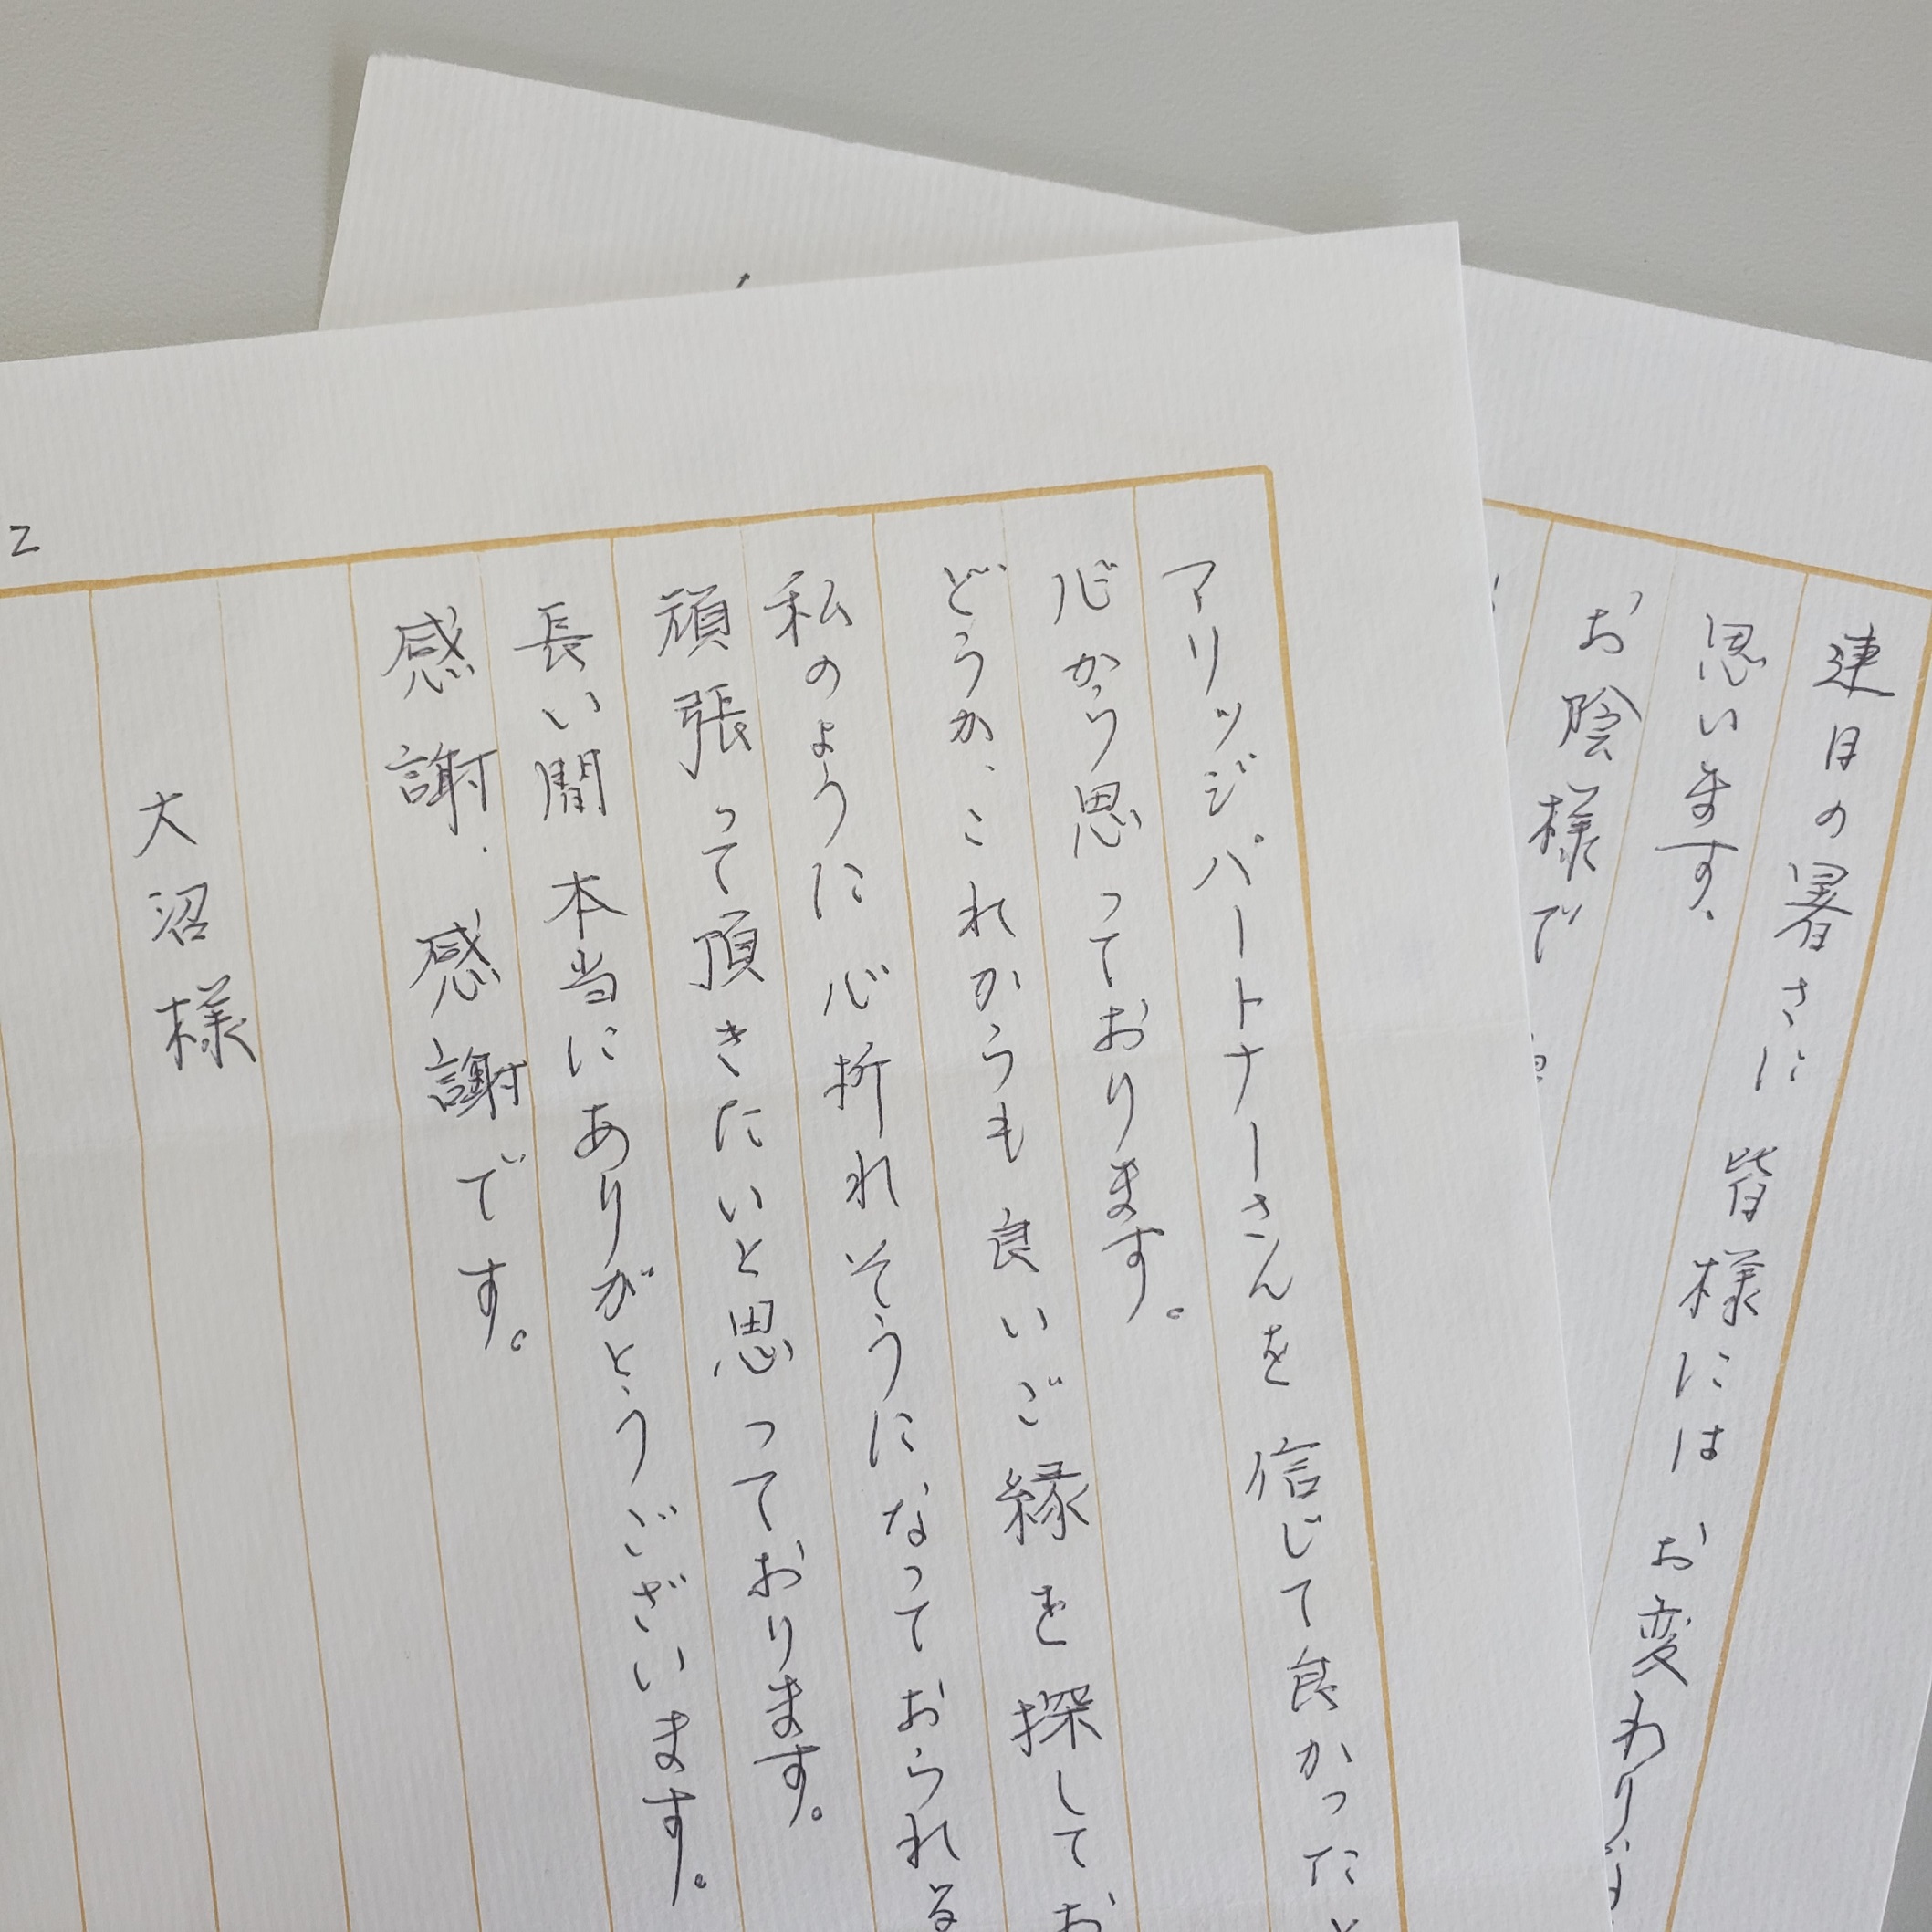 連日の暑さに皆様にはお変わり
思います。
お陰様で
アリッジパートナーさんを信じて良かったと
心から思っております。
どうか、これからも良いご縁を探してお
私のように心折れそうになっておられる
頑張って頂きたいと思っております。
長い間本当にありがとうございます。
感謝、感謝です。
大沼様